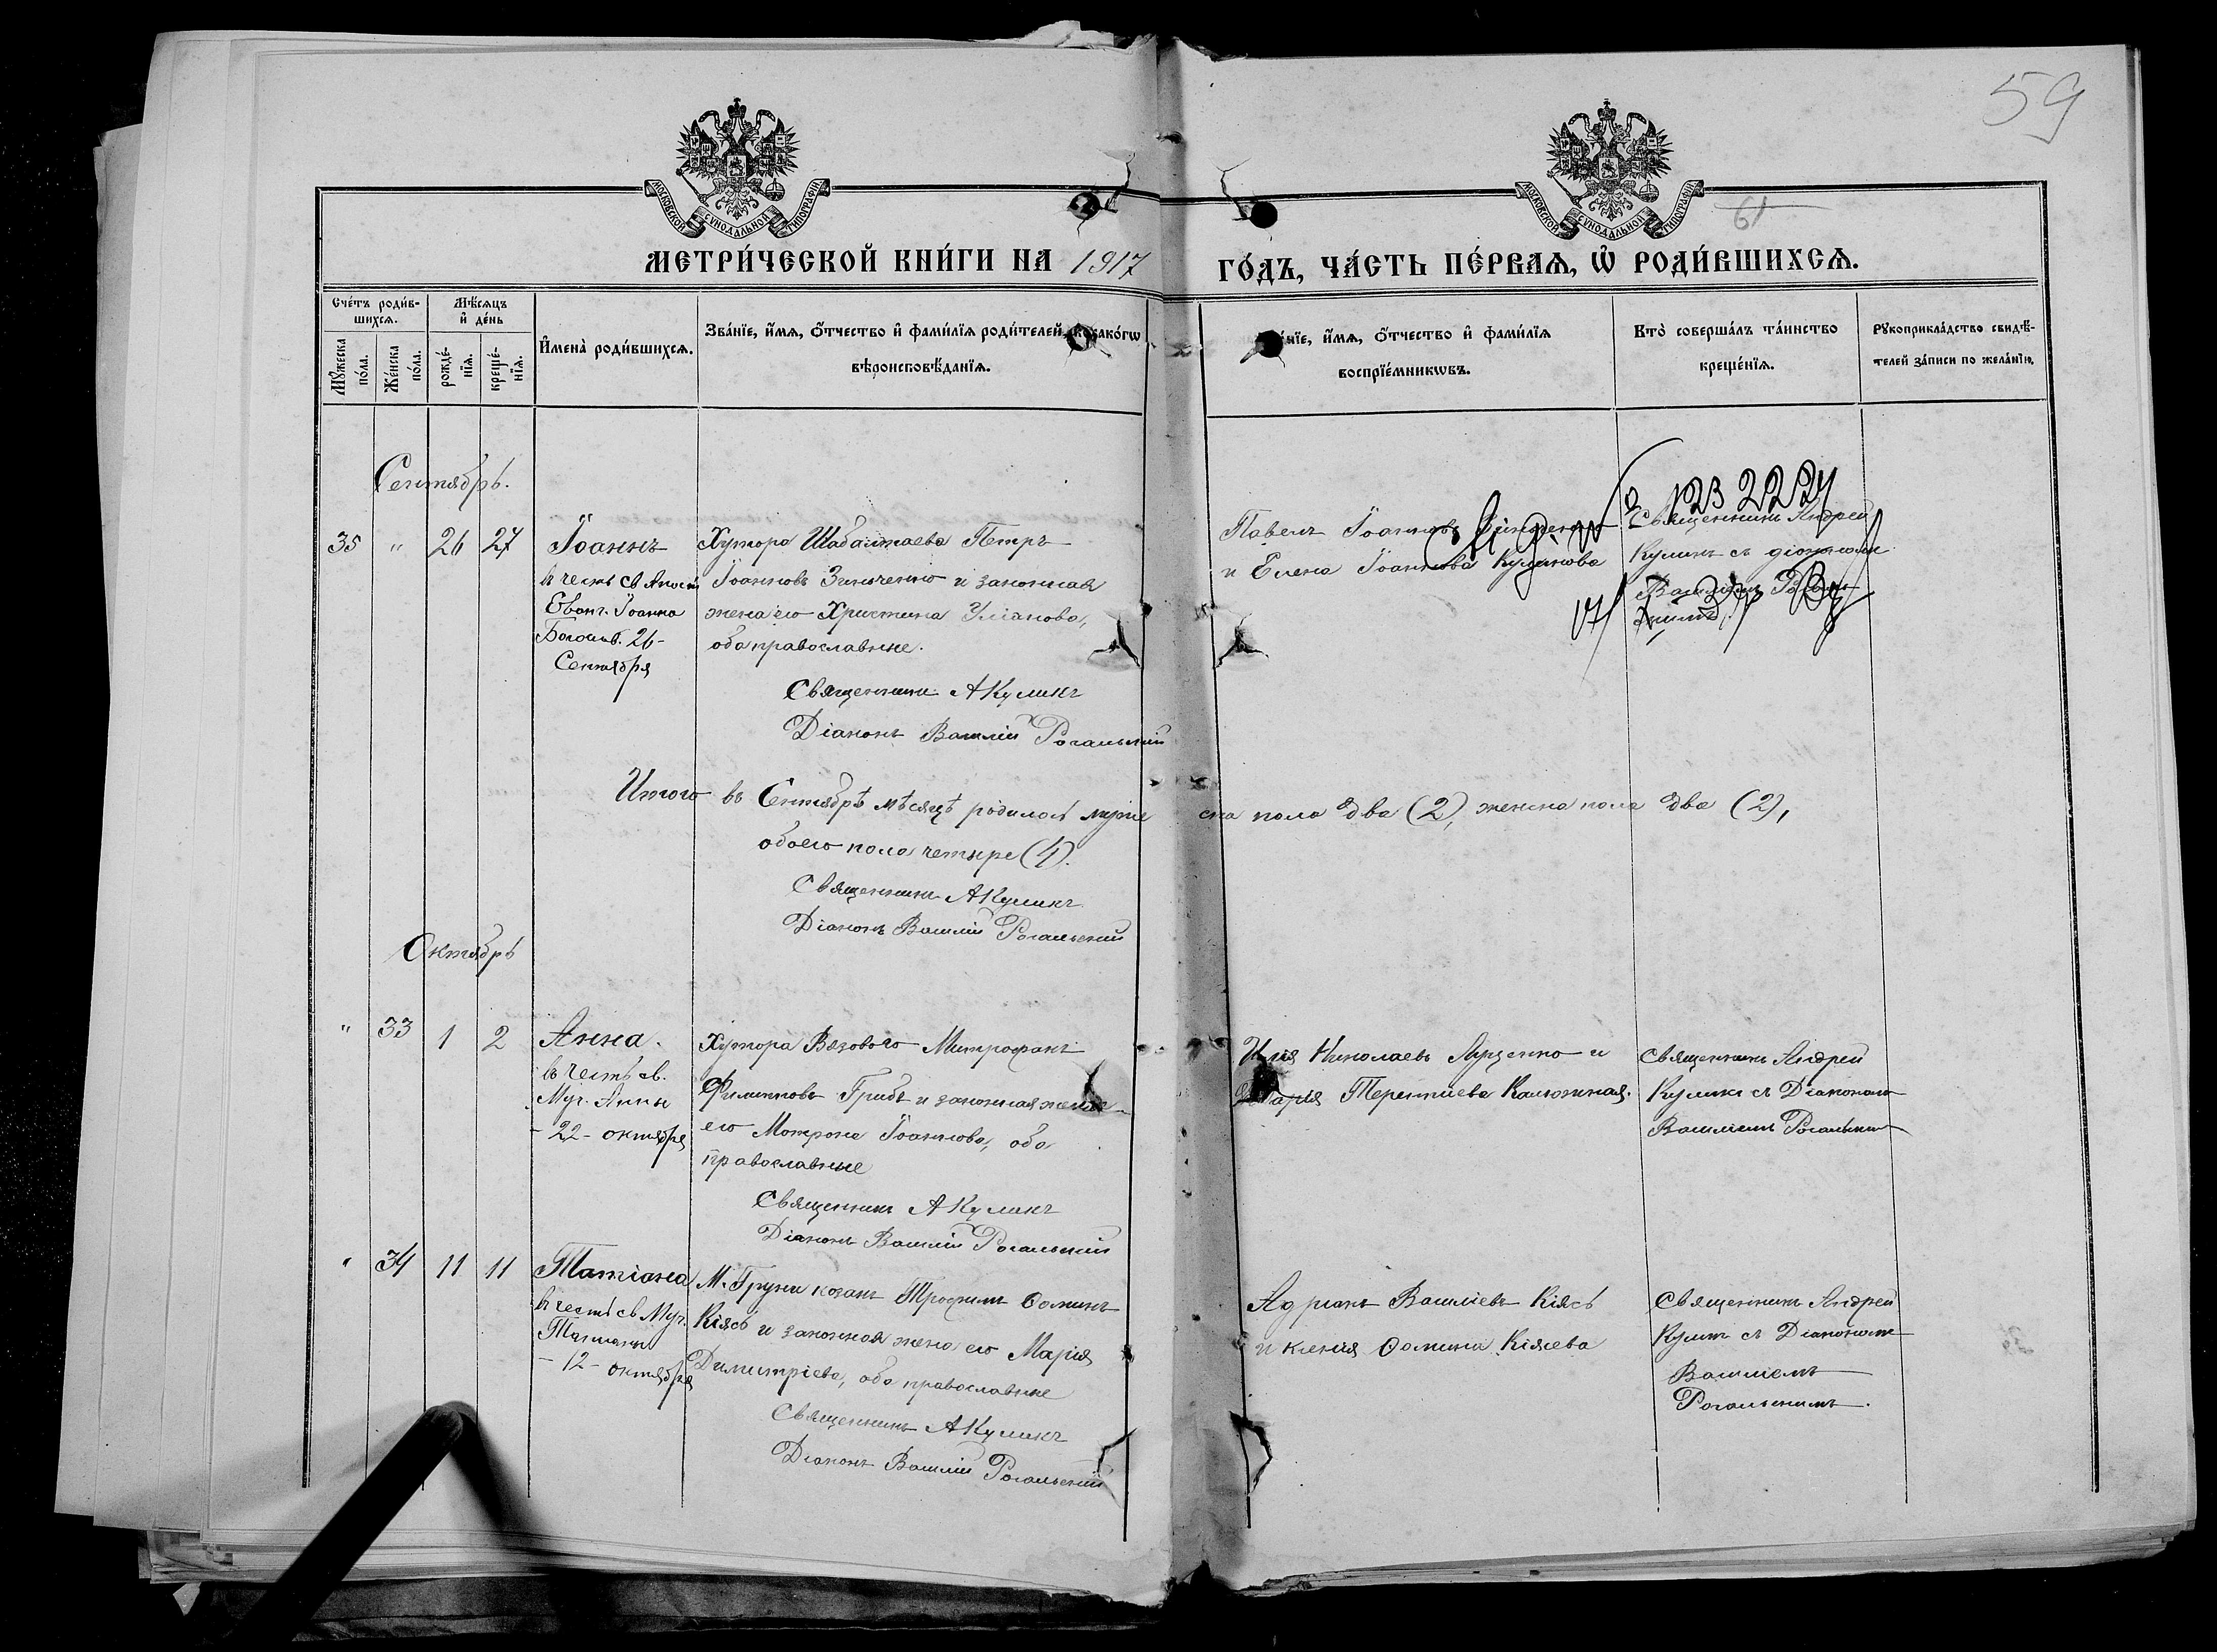 59
МОСКОВСКОЙ СУНОДАЛЬНОЙ ТИПОГРАФІИ
МОСКОВСКОЙ СУНОДАЛЬНОЙ ТИПОГРАФІИ
61
МЕТРИ́ЧЕСКОЙ КНИ́ГИ НА 1917 ГО́ДЪ, ЧА́СТЬ ПЕ́РВАѦ, Ѡ҆ РОДИ́ВШИХСѦ.
Сче́тъ роди́в-
шихсѧ.
Мꙋ́жеска по́ла.
Же́нска по́ла.
Мѣ́сѧцъ и҆ де́нь
рожде́-нїѧ.
креще́-нїѧ.
И҆мена̀ роди́вшихсѧ.
Зва́нїе, и҆́мѧ, ѻ҆́тчество и҆ фами́лїѧ роди́телей,
вѣроисповѣ́данїѧ.
и҆́мѧ, ѻ҆́тчество и҆ фами́лїѧ
воспрїе́мникѡвъ.
Кто̀ соверша́лъ та́инство
креще́нїѧ.
Рꙋкоприкла́дство свидѣ́-
телей за́писи по жела́нїю.
Сентябрь.
35 " 26 27
Іоаннъ
въ честь св. Апост.
Еванг. Іоанна
Богосл. 26-
Сентября
Хутора Петръ
Іоанновъ Зинченко и законная
жена его Христина Уліанова,
оба православные.
Священникъ АКуликъ
Діаконъ Василій Рогальскій
Павелъ Іоанновъ
и Елена Іоаннова Куликова
123 2224
Священникъ Андрей
Куликъ съ діакономъ
Итого въ Сентябрѣ мѣсяцѣ родилось муже ска пола два (2), женска пола два (2),
обоего пола четыре (4).
Священникъ АКуликъ
Діаконъ Василій Рогальскій
Октябрь
" 33 1 2
Анна.
въ честь св.
Муч. Анны
- 22 - октября
Хутора Вязового Митрофанъ
Филипповъ Грибъ и законная жена
его Мотрона Іоаннова, оба
православные
Священникъ АКуликъ
Діаконъ Василій Рогальскій
Илія Николаевъ Луценко и
Марія Терентіева Калюжная.
Священникъ Андрей
Куликъ съ Діакономъ
Василіемъ Рогальскимъ
" 34 11 11
Татіана
въ честь св. Муч.
Татіаны
- 12 - октября
М. Груни козакъ Трофимъ Ѳоминъ
Кіясь и законная жена его Марія
Димитріева, оба православные
Священникъ АКуликъ
Діаконъ Василій Рогальскій
Адріанъ Василіевъ Кіясь
и Ксенія Ѳомина Кіясева
Священникъ Андрей
Куликъ съ Діакономъ
Василіемъ
Рогальскимъ.